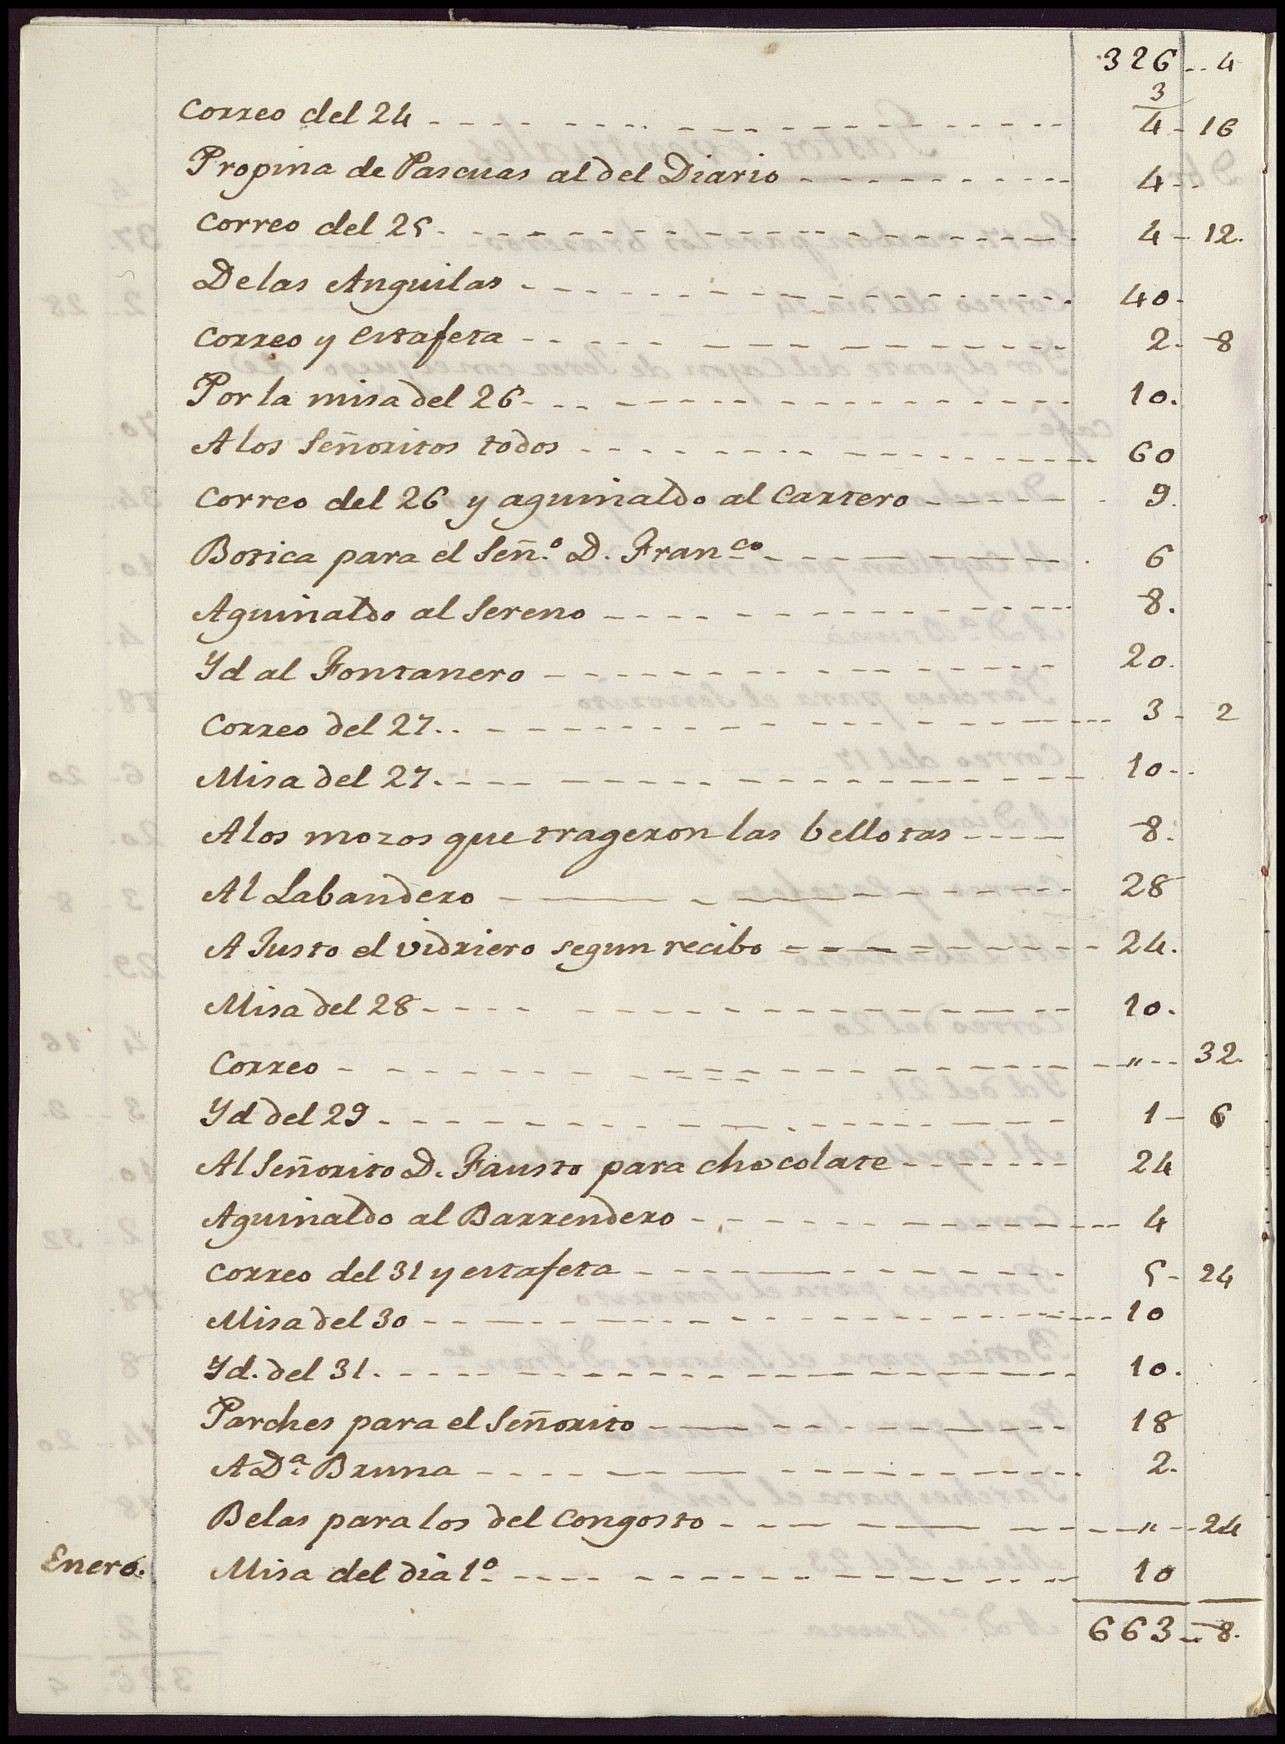 326 .. 4
3
Correo del 24 4 - 16
Propina de Pascuas al del Diario 4 - .
Correo del 25 4 - 12.
De las Anguilas 40.
Correo y estafeta 2. 8
Por la misa del 26 10.
A los Señoritos todos 60
Correo del 26 y aguinaldo al Cartero 9.
Botica para el Señ.º D. Fran.co 6
Aguinaldo al Sereno 8.
Yd al Fontanero 20.
Correo del 27.. 3 - 2
Misa del 27. 10..
A los mozos que trageron las bellotas 8.
Al Labandero 28
A Justo el vidriero segun recibo 24.
Misa del 28 10.
Correo " 32.
Yd del 29 1 - 6
Al Señorito D. Fausto para chocolate 24
Aguinaldo al Barrendero 4
Correo del 31 y estafeta 5 - 24
Misa del 30 10
Yd. del 31. 10.
Parches para el Señorito 18
A D.ª Bruna 2.
Belas para los del Congosto " 24
Enero. Misa del dia 1º 10
663 .. 8.